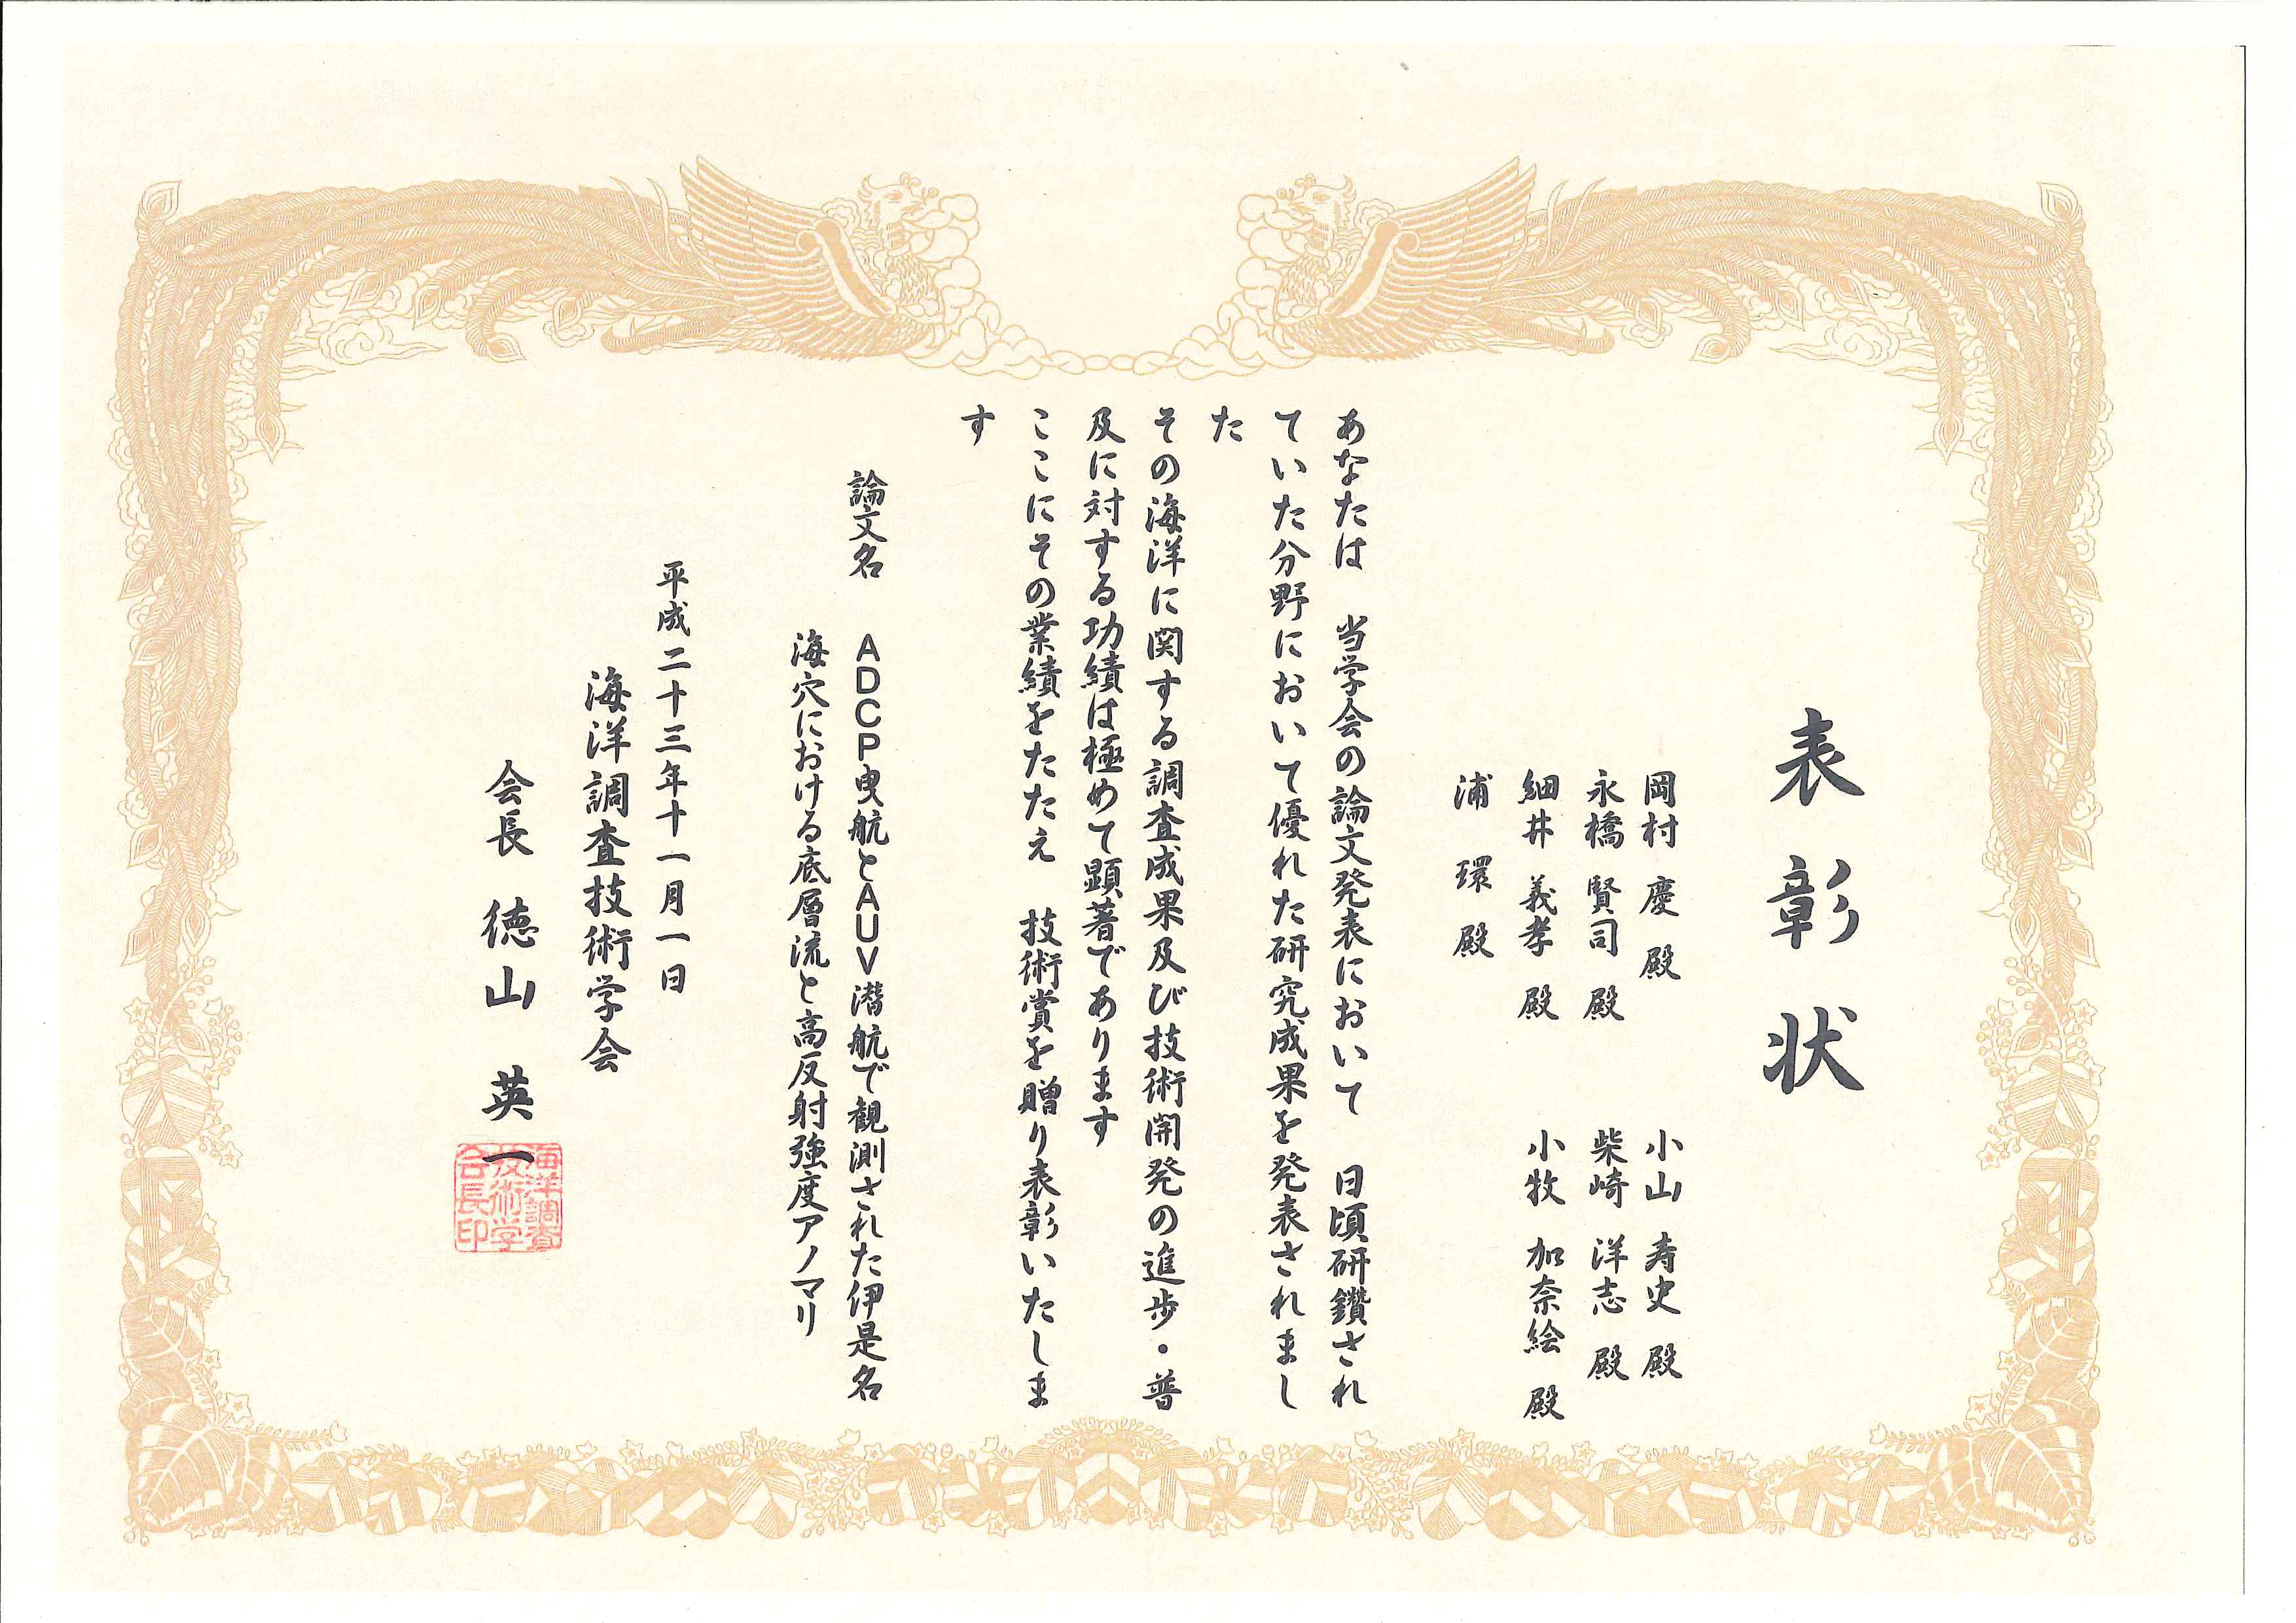 表彰状
岡村 慶 殿 小山 寿史 殿
永橋 賢司 殿 柴崎 洋志 殿
細井 義孝 殿 小牧 加奈絵 殿
浦 環 殿
あなたは 当学会の論文発表において 日頃研鑽され
ていた分野において優れた研究成果を発表されまし
た
その海洋に関する調査成果及び技術開発の進歩・普
及に対する功績は極めて顕著であります
ここにその業績をたたえ 技術賞を贈り表彰いたしま
す
論文名 ADCP曳航とAUV潜航で観測された伊是名
海穴における底層流と高反射強度アノマリ
平成二十三年十一月一日
海洋調査技術学会
会長 徳山 英一
海洋調査
技術学
会長印